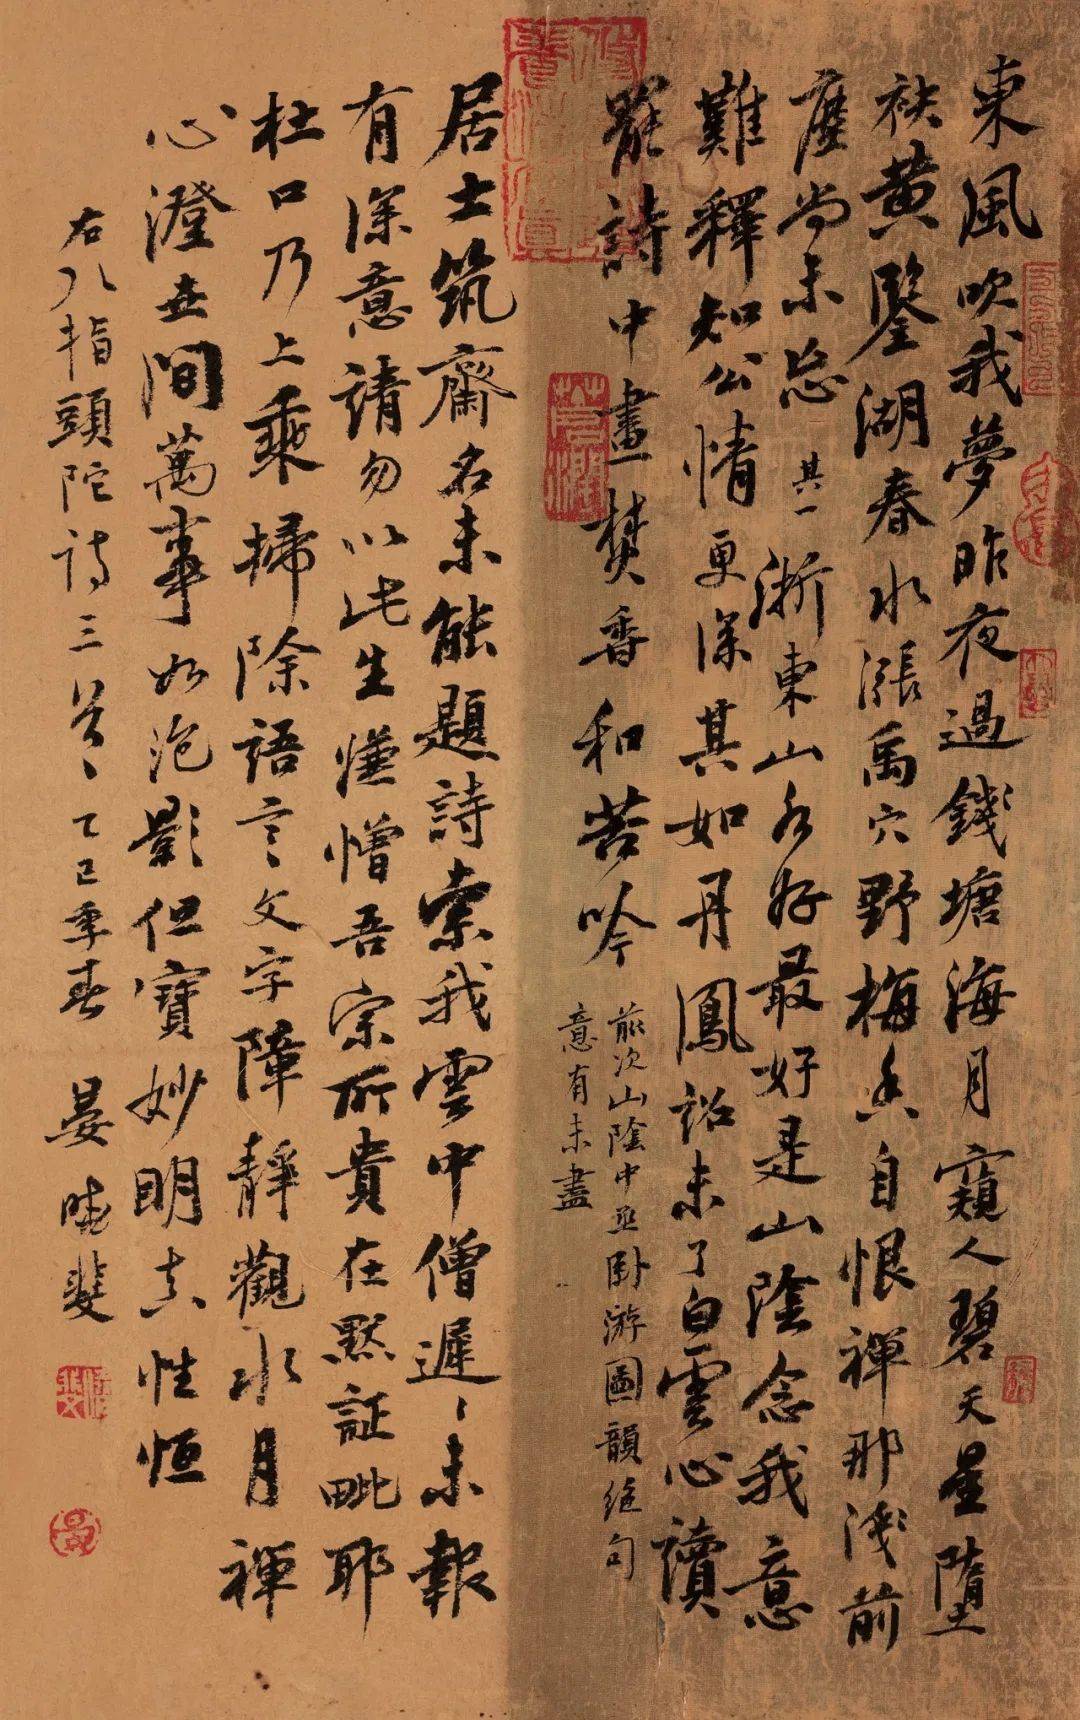 東風吹我夢昨夜過錢塘海月窺人碧天星墮
袂黄鑒湖春水漲禹穴野梅香自恨禪那淺前
塵尚未忘 其一 浙東山水好最好是山陰念我意
難釋知公情更深其如丹鳳詔未了白雲心讀
罷詩中畫焚香和苦吟
前次山陰中丞卧游圖韻絶句
意有未盡
居士筑齋名未能題詩索我雲中僧遲〻未報
有深意請勿以此生嫌憎吾宗所貴在默証毗耶
杜口乃上乘掃除語言文字障靜觀水月禪
心澄世間萬事如泡影但寶妙明真性恒
右八指頭陀詩三首〻乙巳季春 晏曉斐